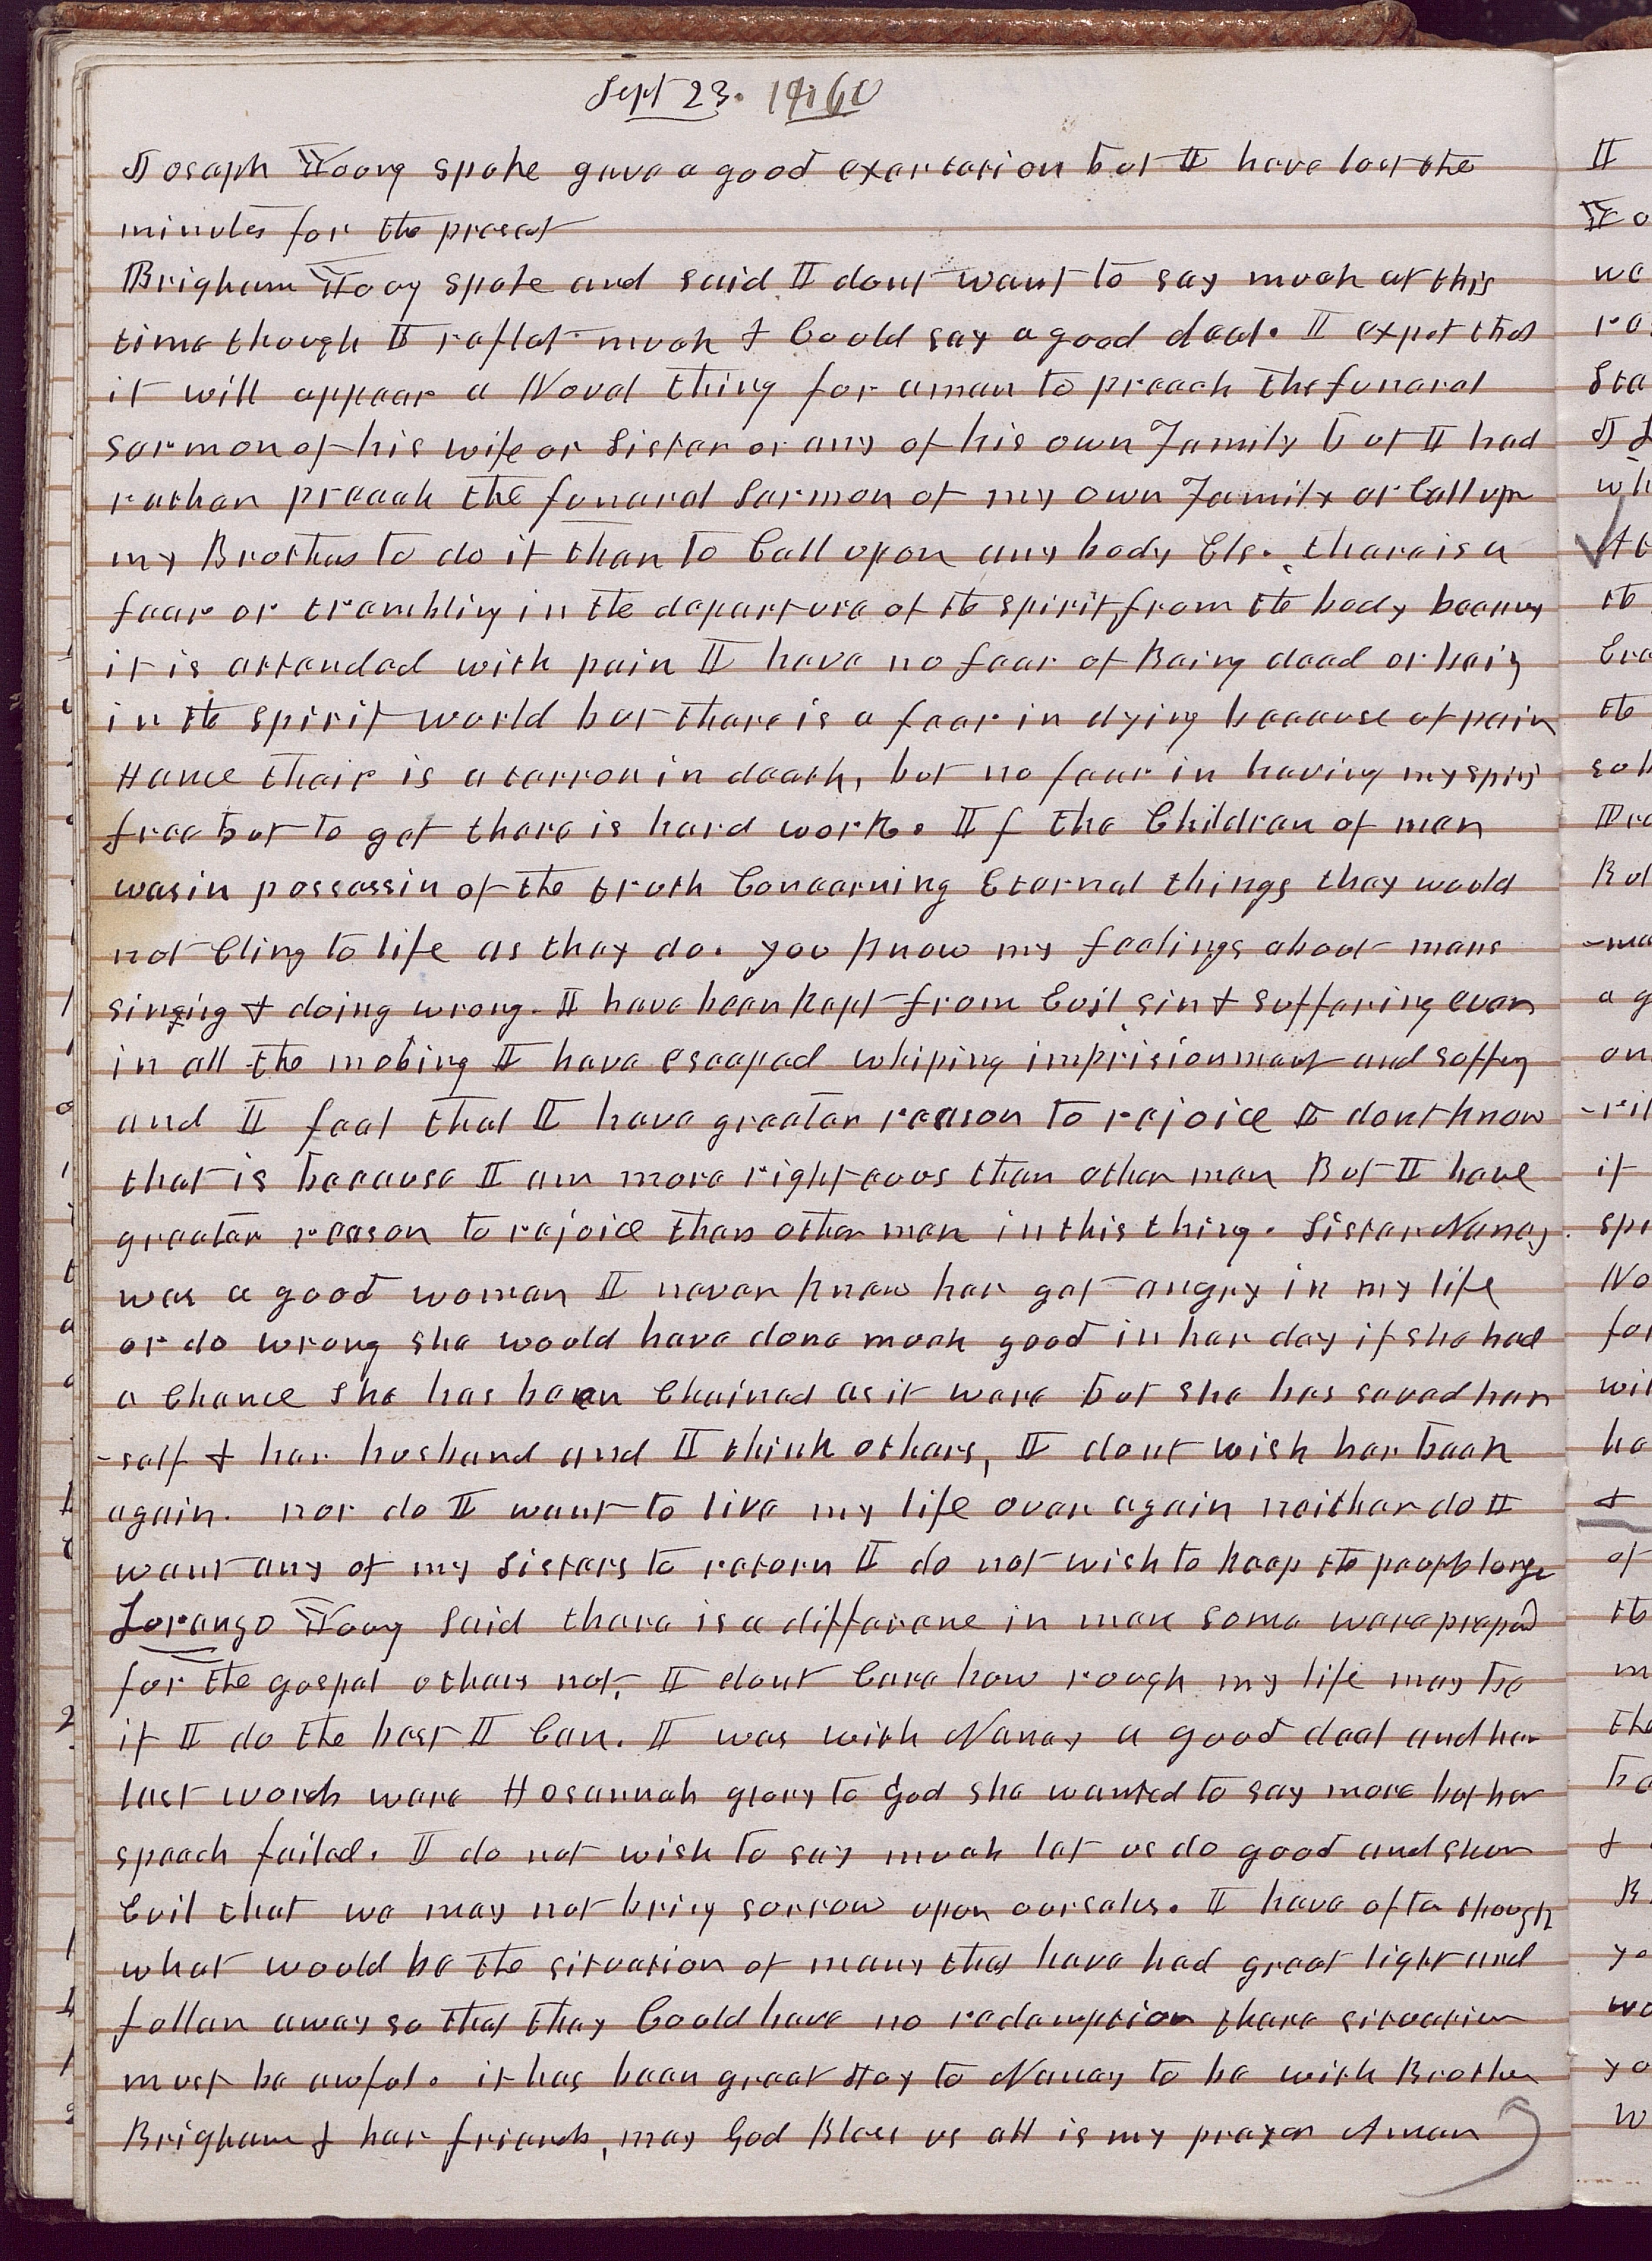 Sept 23. 1860
Joseph Young spoke gave a good exertation but I have lost the
minutes for the preset
Brigham Young Spoke and said I dont want to say much at this
time though I reflet much & Could say a good deal. I expet that
it will appear a Novel thing for a man to preach the funeral
sermon of his wife or Sister or any of his own Family but I had
rather preach the funeral Sermon of my own Family or Call upn
my Brothers to do it than to Call upon any body Els. there is a
fear or trembling in the departure of the spirit from the body because
it is attended with pain I have no fear of Being dead or being
in the spirit world but there is a fear in dying because of pain
Hance their is a terror in death, but no fear in having my spirit
free but to get there is hard work. If the Children of men
was in possessin of the truth Concerning Eternal things they would
not Cling to life as they do. you know my feelings about mans
sining & doing wrong. I have been kept from Evil sin & Suffering even
in all the mobing I have escaped whiping imprisionment and suffeng
and I feel that I have greater reason to rejoice I dont know
that is because I am more righteous than other men But I have
greater reason to rejoice than other men in this thing. Sister Nancy
was a good woman I never knew her get angry in my life
or do wrong she would have done much good in her day if she had
a Chance She has been Chained as it were but she has saved her
-self & her husband and I think others, I dont wish her back
again. nor do I want to live my life over again neither do I
want any of my Sisters to return I do not wish to keep the people longe
Lorenzo Young Said there is a differene in men some were prepaed
for the gospel others not, I dont Care how rough my life may be
if I do the best I Can. I was with Nancy a good deal and her
last words were Hosannah glory to God she wanted to say more but her
speech failed. I do not wish to say much let us do good and shun
Evil that we may not bring sorrow upon ourselves. I have ofte though
what would be the situation of many that have had great light and
fallen away so that they Could have no redemption there situation
must be awful. it has been great Stay to Nancy to be with Brother
Brigham & her friends, may God Bless us all is my prayer Amen